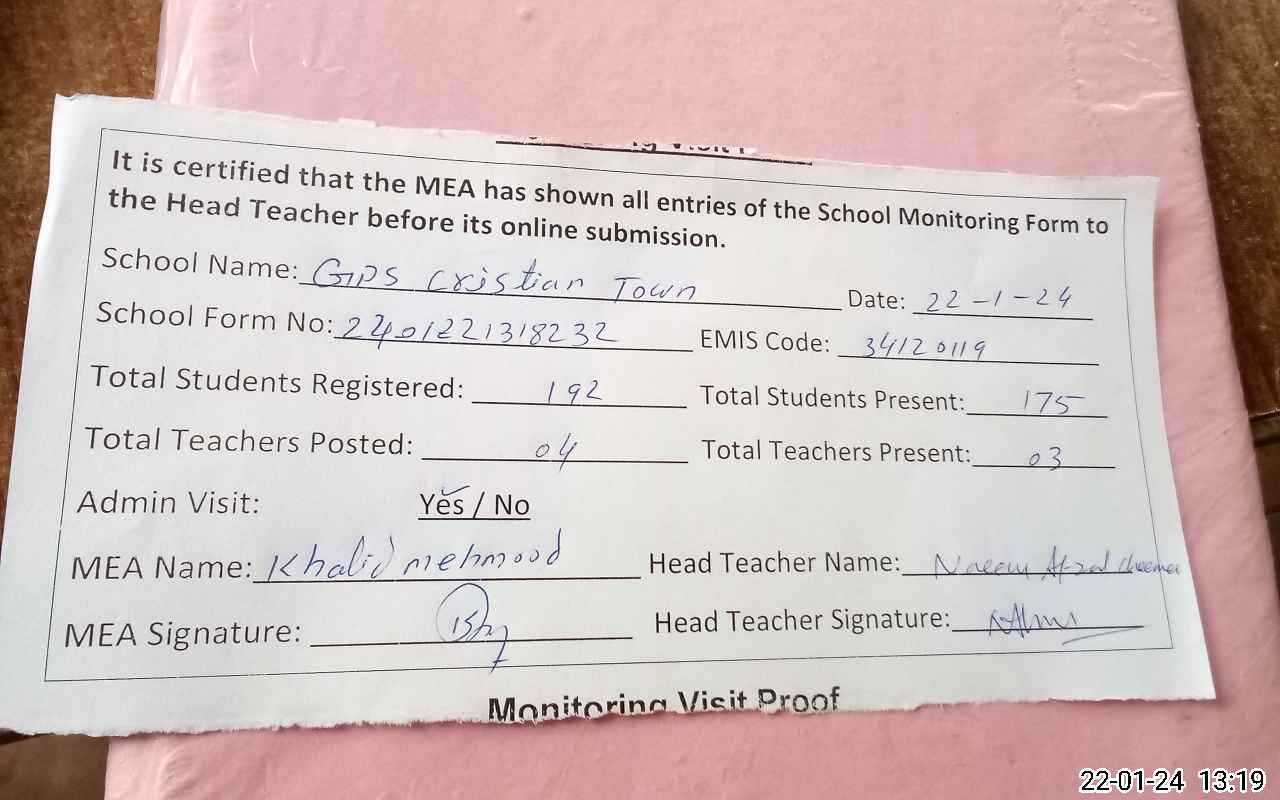 It is certified that the MEA has shown all entries of the School Monitoring Form to
the Head Teacher before its online submission.
School Name: GPS Cristian Town Date: 22-1-24
School Form No: 2401221318232 EMIS Code: 34120119
Total Students Registered: 192 Total Students Present: 175
Total Teachers Posted: 04 Total Teachers Present: 03
Admin Visit: Yes / No
MEA Name: Khalid mehmood Head Teacher Name: Naeem Afzal cheema
MEA Signature: Head Teacher Signature:
Monitoring Visit Proof
22-01-24 13:19